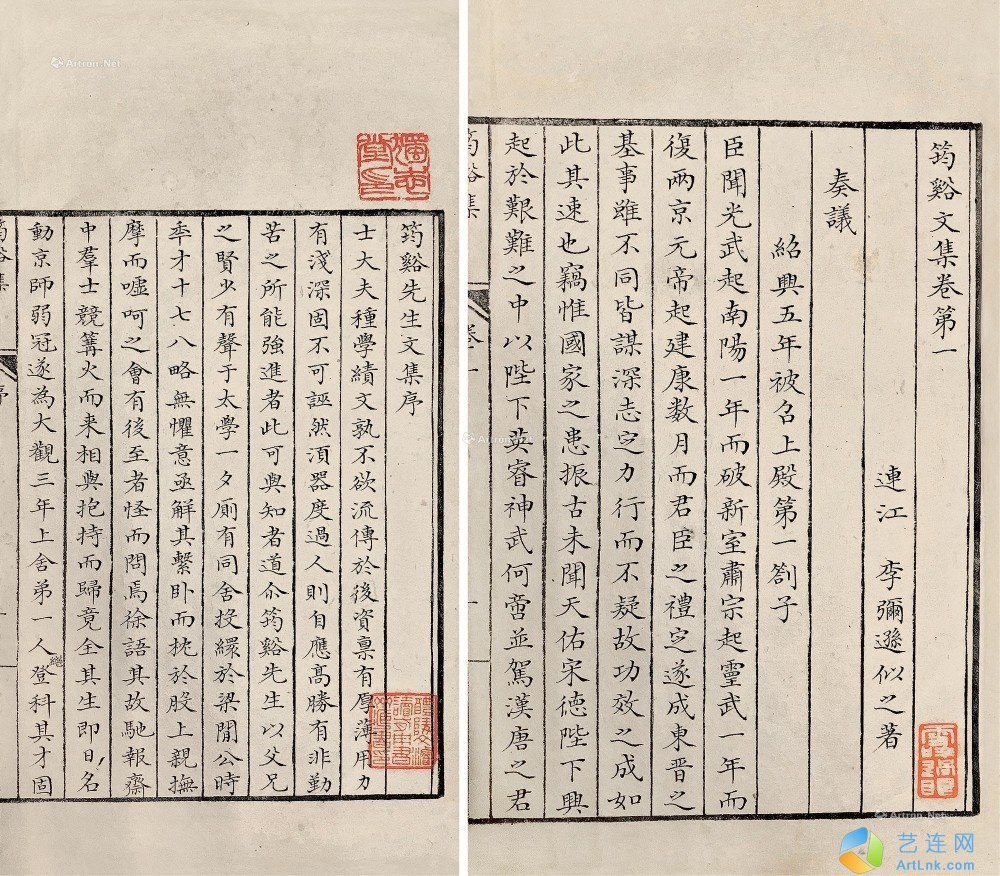 筠谿文集卷第一
連江 李彌遜似之著
奏議
紹興五年被召上殿第一劄子
臣聞光武起南陽一年而破新室肅宗起靈武一年而
復兩京元帝起建康数月而君臣之禮定遂成東晋之
基事雖不同皆謀深志定力行而不疑故功效之成如
此其速也竊惟國家之患振古未聞天佑宋德陛下興
起於艱難之中以陛下英睿神武何啻並駕漢唐之君
筠谿集
卷一
一
筠谿先生文集序
士大夫種學績文孰不欲流傳於後資禀有厚薄用力
有淺深固不可誣然湏器度過人則自應髙勝有非勤
苦之所能強進者此可與知者道尒筠谿先生以父兄
之賢少有聲于太學一夕厠有同舍投繯於梁閒公時
年才十七八略無懼意亟解其繫卧而枕於股上親撫
摩而噓呵之會有後至者怪而問焉徐語其故馳報齋
中羣士競篝火而来相與抱持而歸竟全其生即日名
動京師弱冠遂為大觀三年上舍第一人登科其才固
筠谿集
序
一
Artron.Net
艺连网
ArtLnk.com